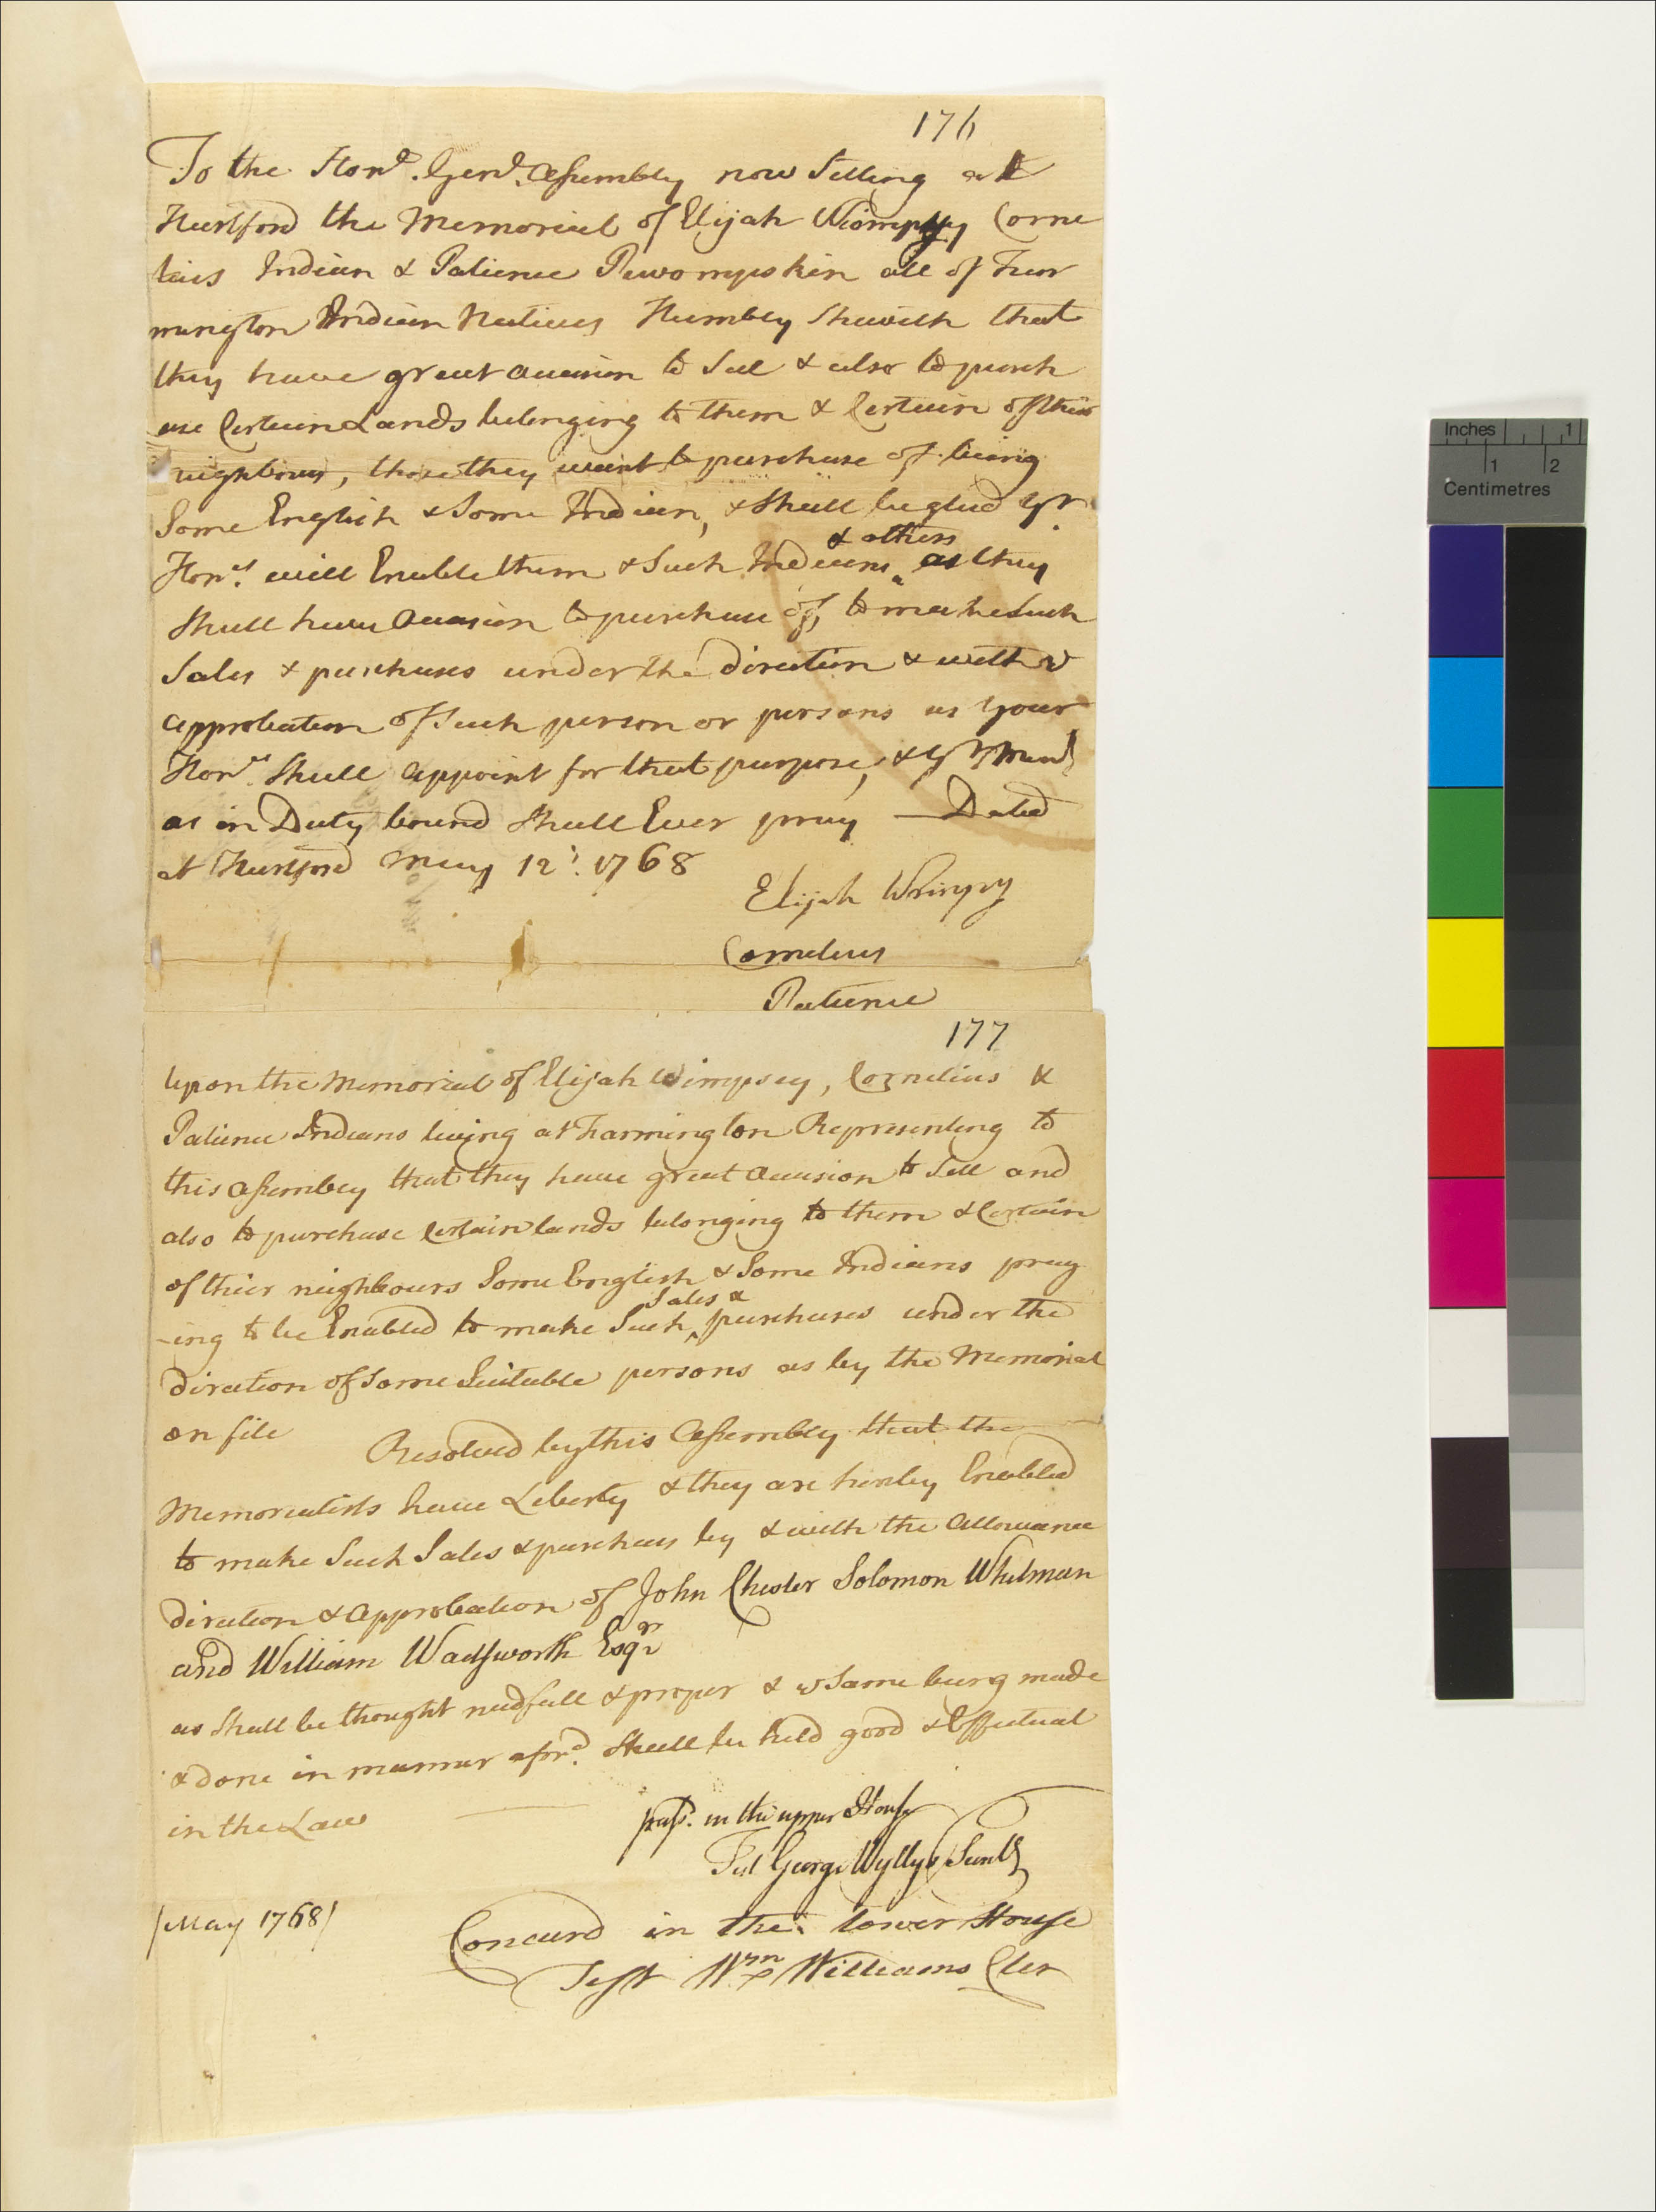 176
To the Honᵈ. Genˡ. Assembly now Setting at
Hartford the Memorial of Elijah Wiompsy Corne
lius Indian & Patience Pewompskin all of Far
mington Indian Natives Humbly Sheweth that
they have great occasion to Sell & also to purch
ase Certain Lands belonging to them & Certain of their
neighbours, those they want to purchase of being
Some English & Some Indian, & Shall be glad yr
Honrs. will Enable them & Such Indians & others as they
Shall have Occasion to purchase of, to make Such
Sales & purchases under the Direction & with ye
approbation of Such person or persons as your
Honrs. Shall appoint for that purpose, & yr Memls
as in Duty bound Shall Ever pray — Dated
at Hartford May 12: 1768
Elijah Wimpey
Cornelius
Patience
177
Upon the Memorial of Elijah Wimpsey, Cornelius &
Patience Indians living at Farmington Representing to
this assembly that they have great occasion to Sell and
also to purchase Certain lands belonging to them & Certain
of thier neighbours Some English & Some Indians pray
-ing to be Enabled to make Such Sales & purchases under the
direction of Some Suitable persons as by the Memorial
on file Resolved by this Assembly that the
Memorialists have Liberty & they are hereby Enabled
to make Such Sales & purchases by & with the Allowance
direction & approbation of John Chester Solomon Whitman
and William Wadsworth Esqr
as Shall be thought needfull & proper & ye Same being made
& done in manner aford. Shall be held good & Effectual
in the Law
pass'd. in the upper House
Test George Wyllys Secrety
/May 1768/
Concurd in the lower House
Test Wm Williams Cler
Inches 1
1 2
Centimetres